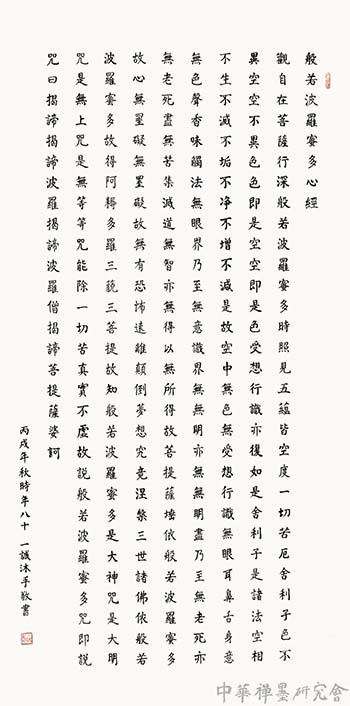 般若波羅蜜多心經
觀自在菩薩行深般若波羅蜜多時照見五蘊皆空度一切苦厄舍利子色不
異空空不異色色即是空空即是色受想行識亦復如是舍利子是諸法空相
不生不滅不垢不淨不增不減是故空中無色無受想行識無眼耳鼻舌身意
無色聲香味觸法無眼界乃至無意識界無無明亦無無明盡乃至無老死亦
無老死盡無苦集滅道無智亦無得以無所得故菩提薩埵依般若波羅蜜多
故心無罣礙無罣礙故無有恐怖遠離顛倒夢想究竟涅槃三世諸佛依般若
波羅蜜多故得阿耨多羅三藐三菩提故知般若波羅蜜多是大神咒是大明
咒是無上咒是無等等咒能除一切苦真實不虛故說般若波羅蜜多咒即說
咒曰揭諦揭諦波羅揭諦波羅僧揭諦菩提薩婆訶
丙戌年秋時年八十一誠沐手敬書
中華禪墨研究會